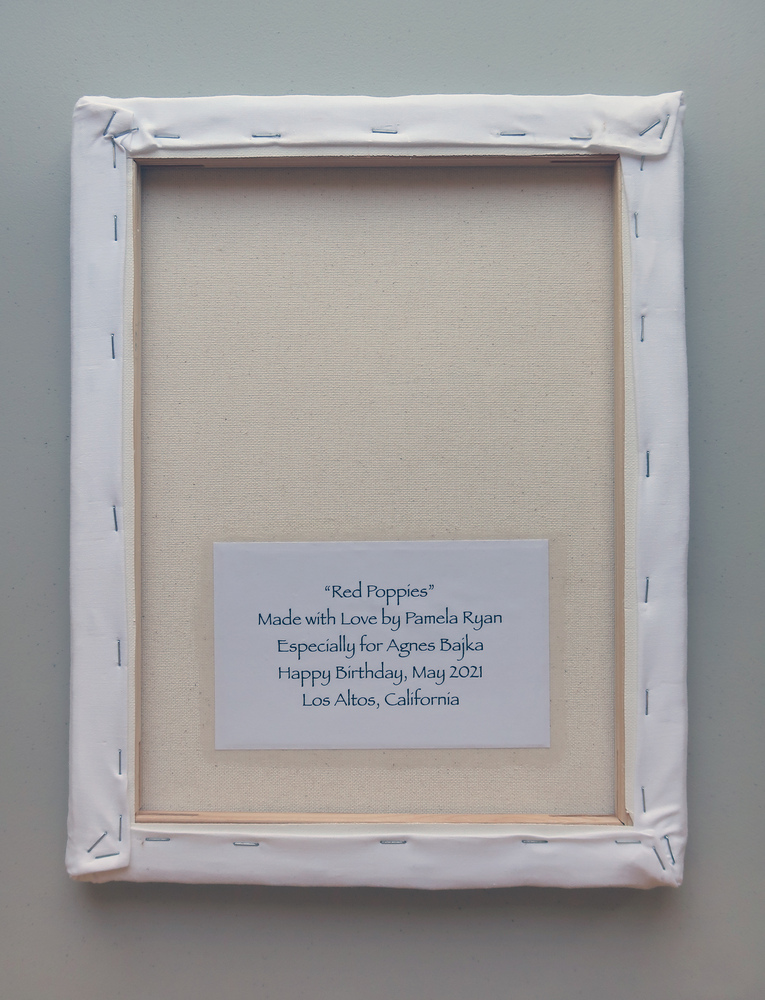 “Red Poppies”
Made with Love by Pamela Ryan
Especially for Agnes Bajka
Happy Birthday, May 2021
Los Altos, California